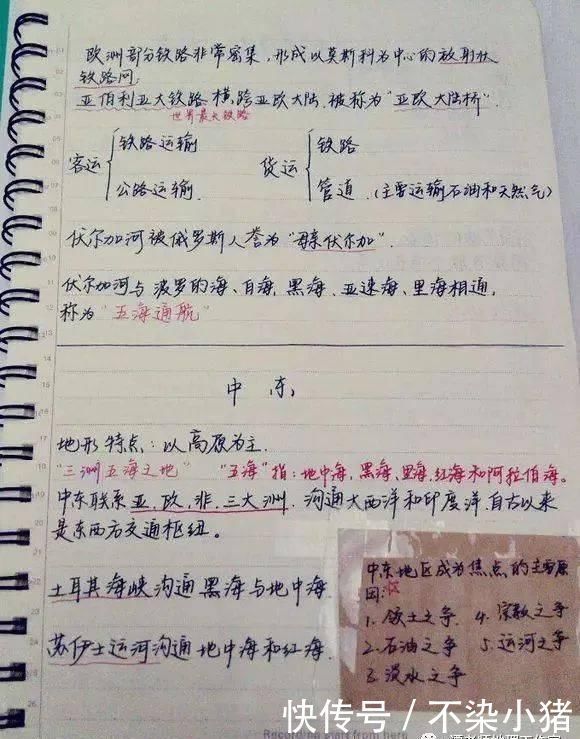 欧洲部分铁路非常密集,形成以莫斯科为中心的放射状
铁路网.
亚伯利亚大铁路 横跨亚欧大陆.被称为"亚欧大陆桥".
世界最大铁路
客运 铁路运输
公路运输
货运 铁路
管道 (主要运输石油和天然气)
伏尔加河被俄罗斯人誉为"母亲伏尔加".
伏尔加河与波罗的海、白海、黑海、亚速海、里海相通,
称为"五海通航"
中 东
地形特点:以高原为主.
"三洲五海之地" "五海"指:地中海,黑海,里海,红海和阿拉伯海。
中东联系亚,欧,非,三大洲,沟通大西洋和印度洋,自古以来
是东西方交通枢纽。
土耳其海峡沟通黑海与地中海
苏伊士运河沟通地中海和红海.
中东地区成为焦点的主要原
因:
1.领土之争 4.宗教之争
2.石油之争 5.运河之争
3.淡水之争
快传号 / 不染小猪